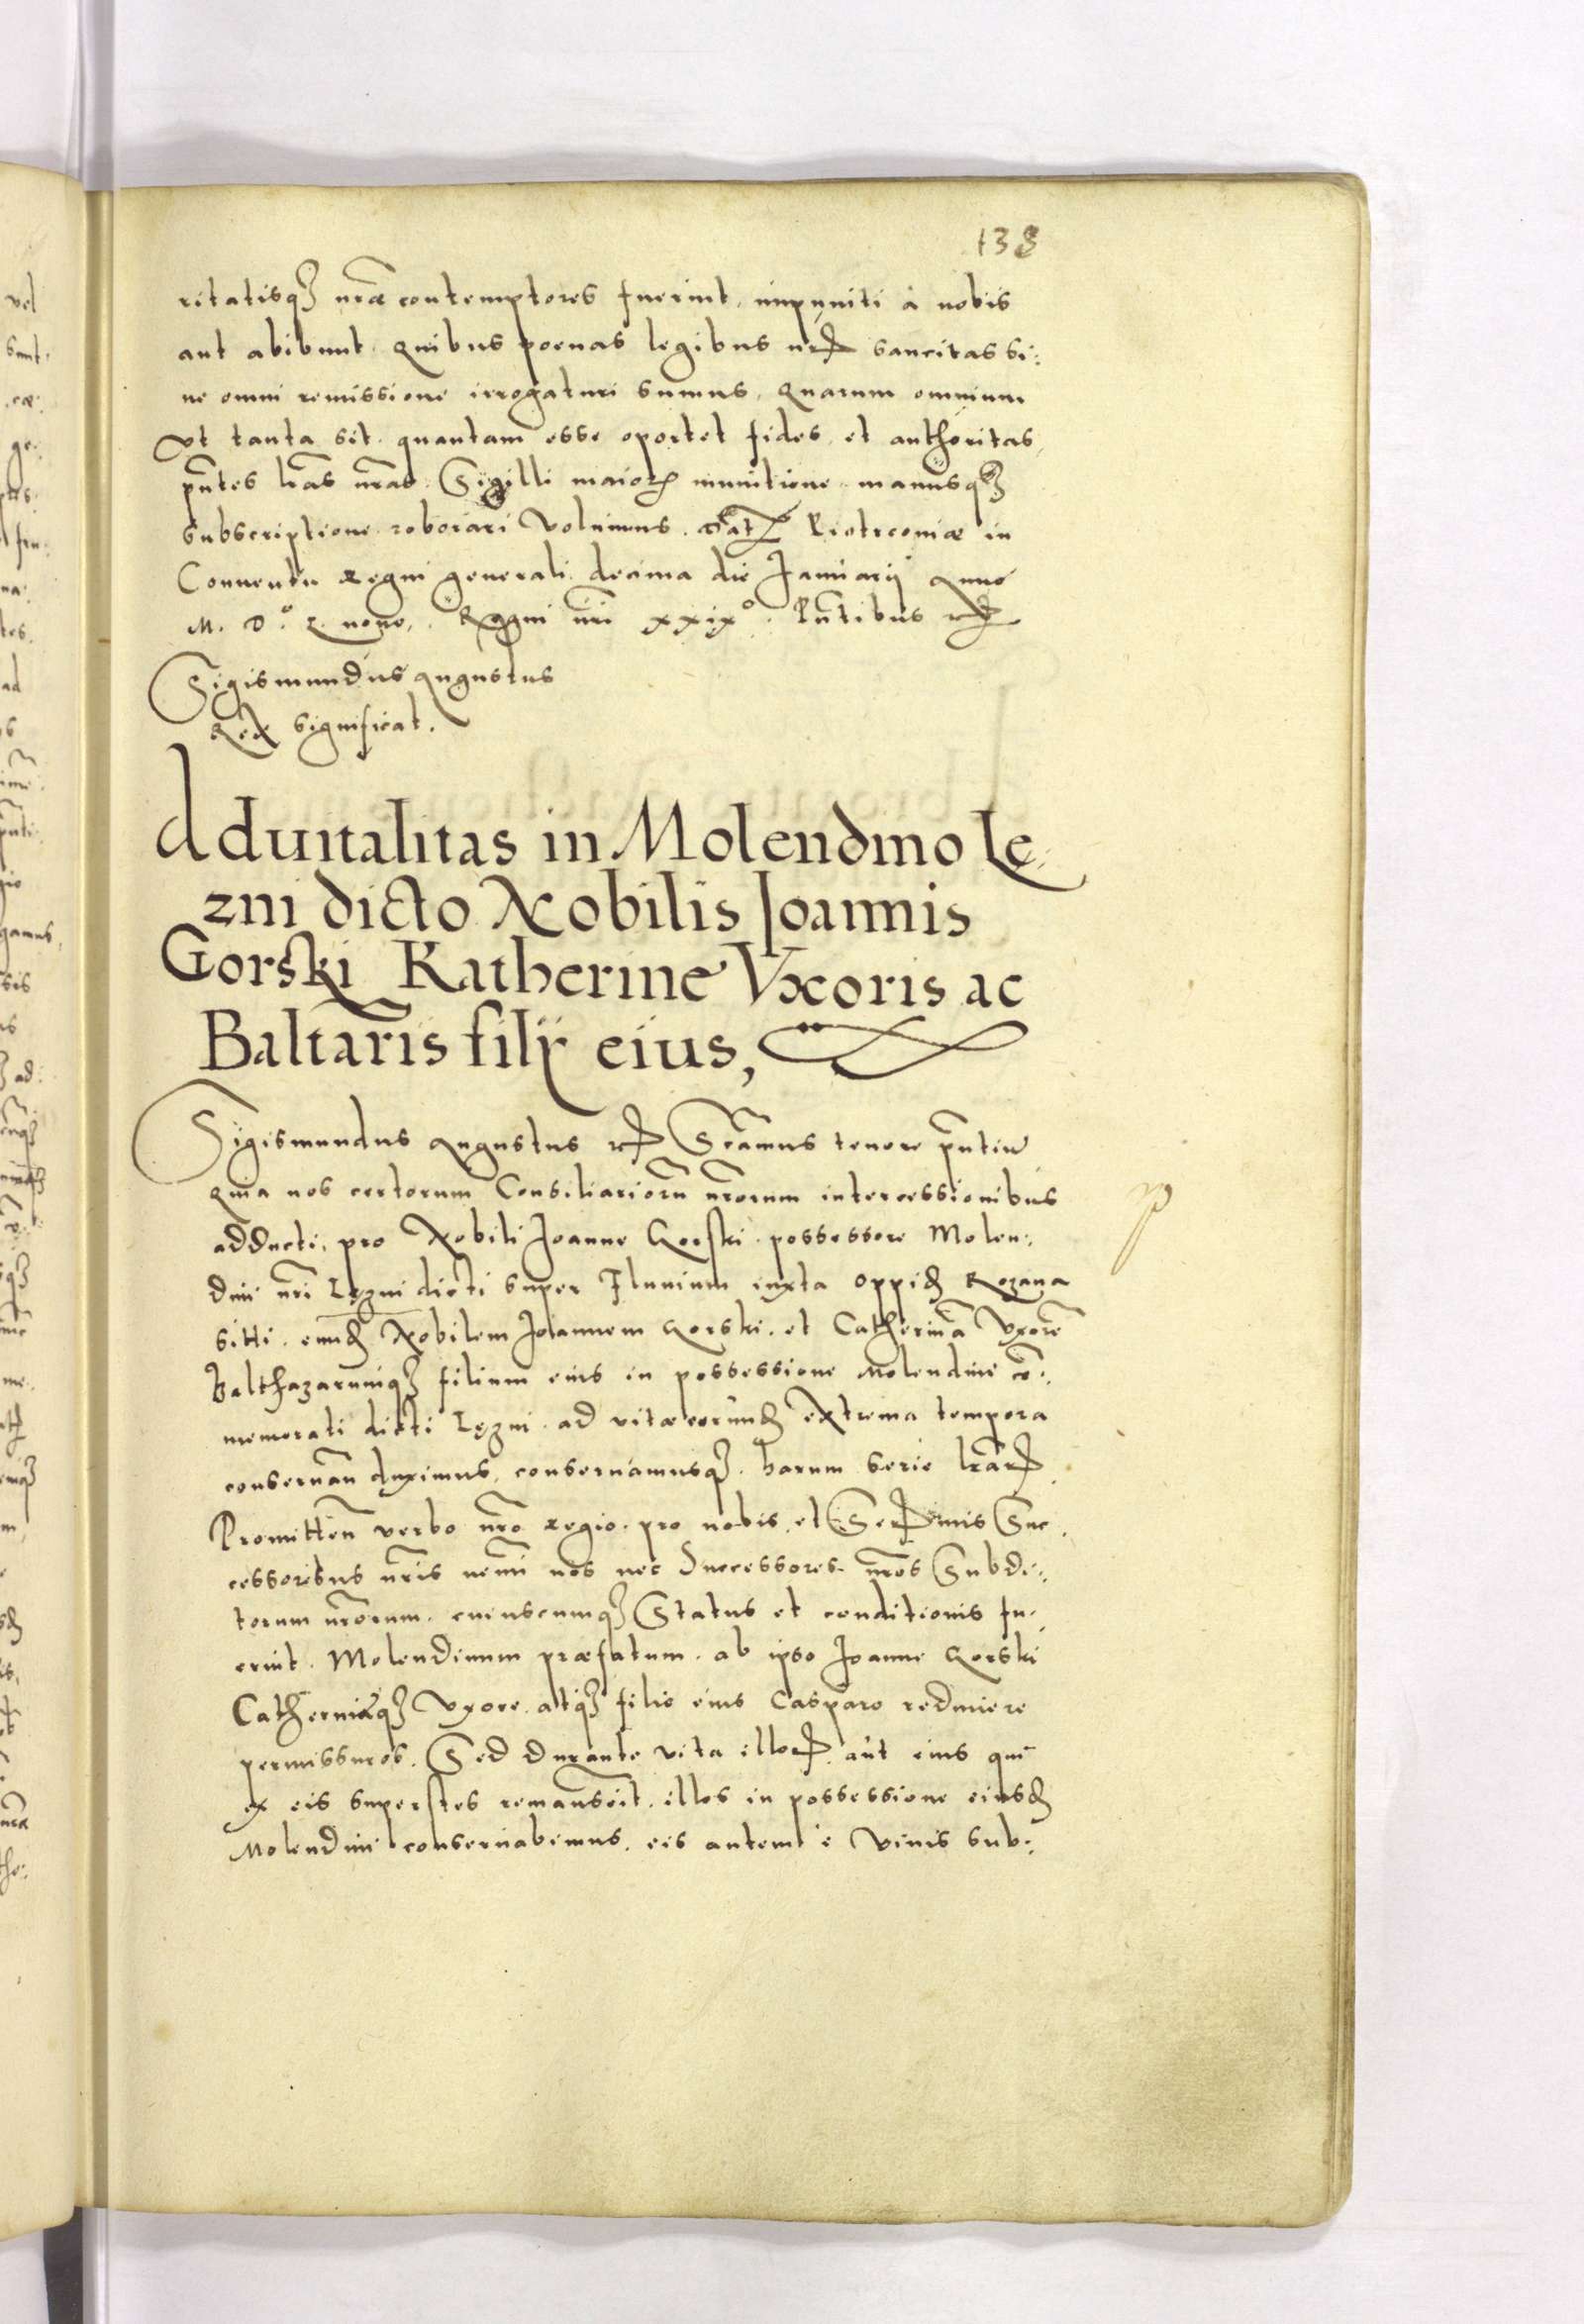 138
ritatisqz nrae contemptores fuerint, impuniti à nobis
aut abibunt. Quibus poenas legibus nris sancitas si:
ne omni remissione irrogaturi sumus, Quarum omnium
Ut tanta sit quantam esse oportet fides et authoritas,
pntes lras nras Sigilli maioris munitione manusqz
subscriptione roborari voluimus. Dat Piotrcoviae in
Conventu Regni generali decima die Januarij Anno
M. D.o L. nono, Regni nri xxixo. Pntibus etc
Sigismundus Augustus
Rex significat.
Advitalitas in Molendino Le:
zni dicto Nobilis Joannis
Gorski Katherine Vxoris ac
Baltaris filij eius,
Sigismundus Augustus etc Significamus tenore pntium
Quia nos certorum Consiliariorum nrorum intercessionibus
adducti, pro Nobili Joanne Gorski possessore Molen:
dini nri Lęzni dicti super Fluvium iuxta oppid Rozana
sitti. eund Nobilem Joannem Gorski et Catherina Uxore
Balthazarumqz filium eius in possessione Molendini co:
memorati dicti Lęzni ad vitae eorund extrema tempora
conservan duximus, conservamusqz harum serie lrar
Promitten verbo nro Regio pro nobis et Sermis Suc
cessoribus nris nemi nos nec Successores nros Subdi:
torum nrorum cuiuscumqz Status et conditionis fu:
erint Molendinum praefatum ab ipso Joanne Gorski
Catherinaqz Uxore atqz filio eius Casparo redimere
permissuros. Sed durante vita illor aut eius qui
ex eis superstes remanserit illos in possessione eiusd
Molendini conservabimus, eis autem e vivis sub: